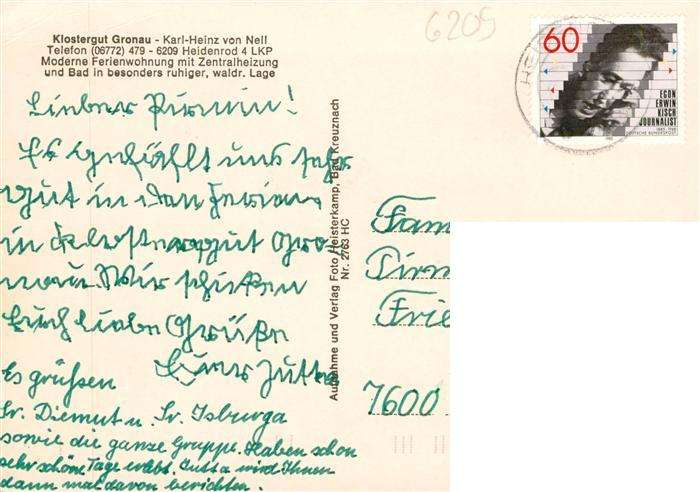 Klostergut Gronau - Karl-Heinz von Nell
Telefon (06772) 479 - 6209 Heidenrod 4 LKP
Moderne Ferienwohnung mit Zentralheizung
und Bad in besonders ruhiger, waldr. Lage
6209
60
EGON
ERWIN
KISCH
JOURNALIST
1885-1948
DEUTSCHE BUNDESPOST
Lieber Pirmin!
Es gefällt uns sehr
gut in den Ferien
in Klostergut Gro-
nau. Wir schicken
Euch liebe Grüße
Eure Jutta
Es grüßen
Sr. Diemut u. Sr. Isburga
sowie die ganze Gruppe. Haben schon
sehr schöne Tage erlebt. Jutta wird Ihnen
dann mal davon berichten.
Aufnahme und Verlag Foto Heisterkamp, Bad Kreuznach
Nr. 2763 HC
Fam
Pirm
Frie
7600